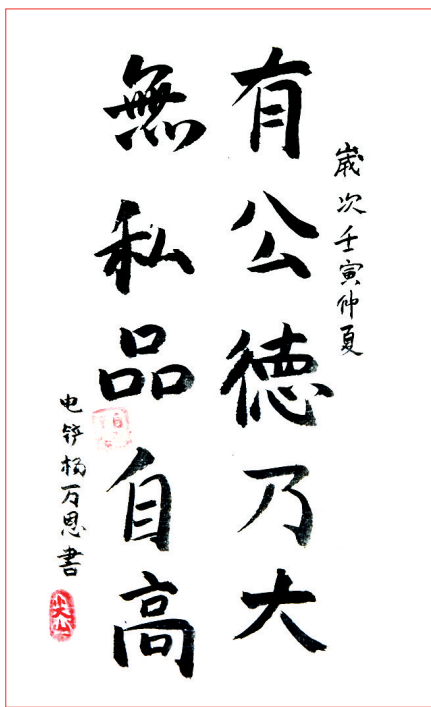 歲次壬寅仲夏
有公德乃大
無私品自高
电铎杨万恩書